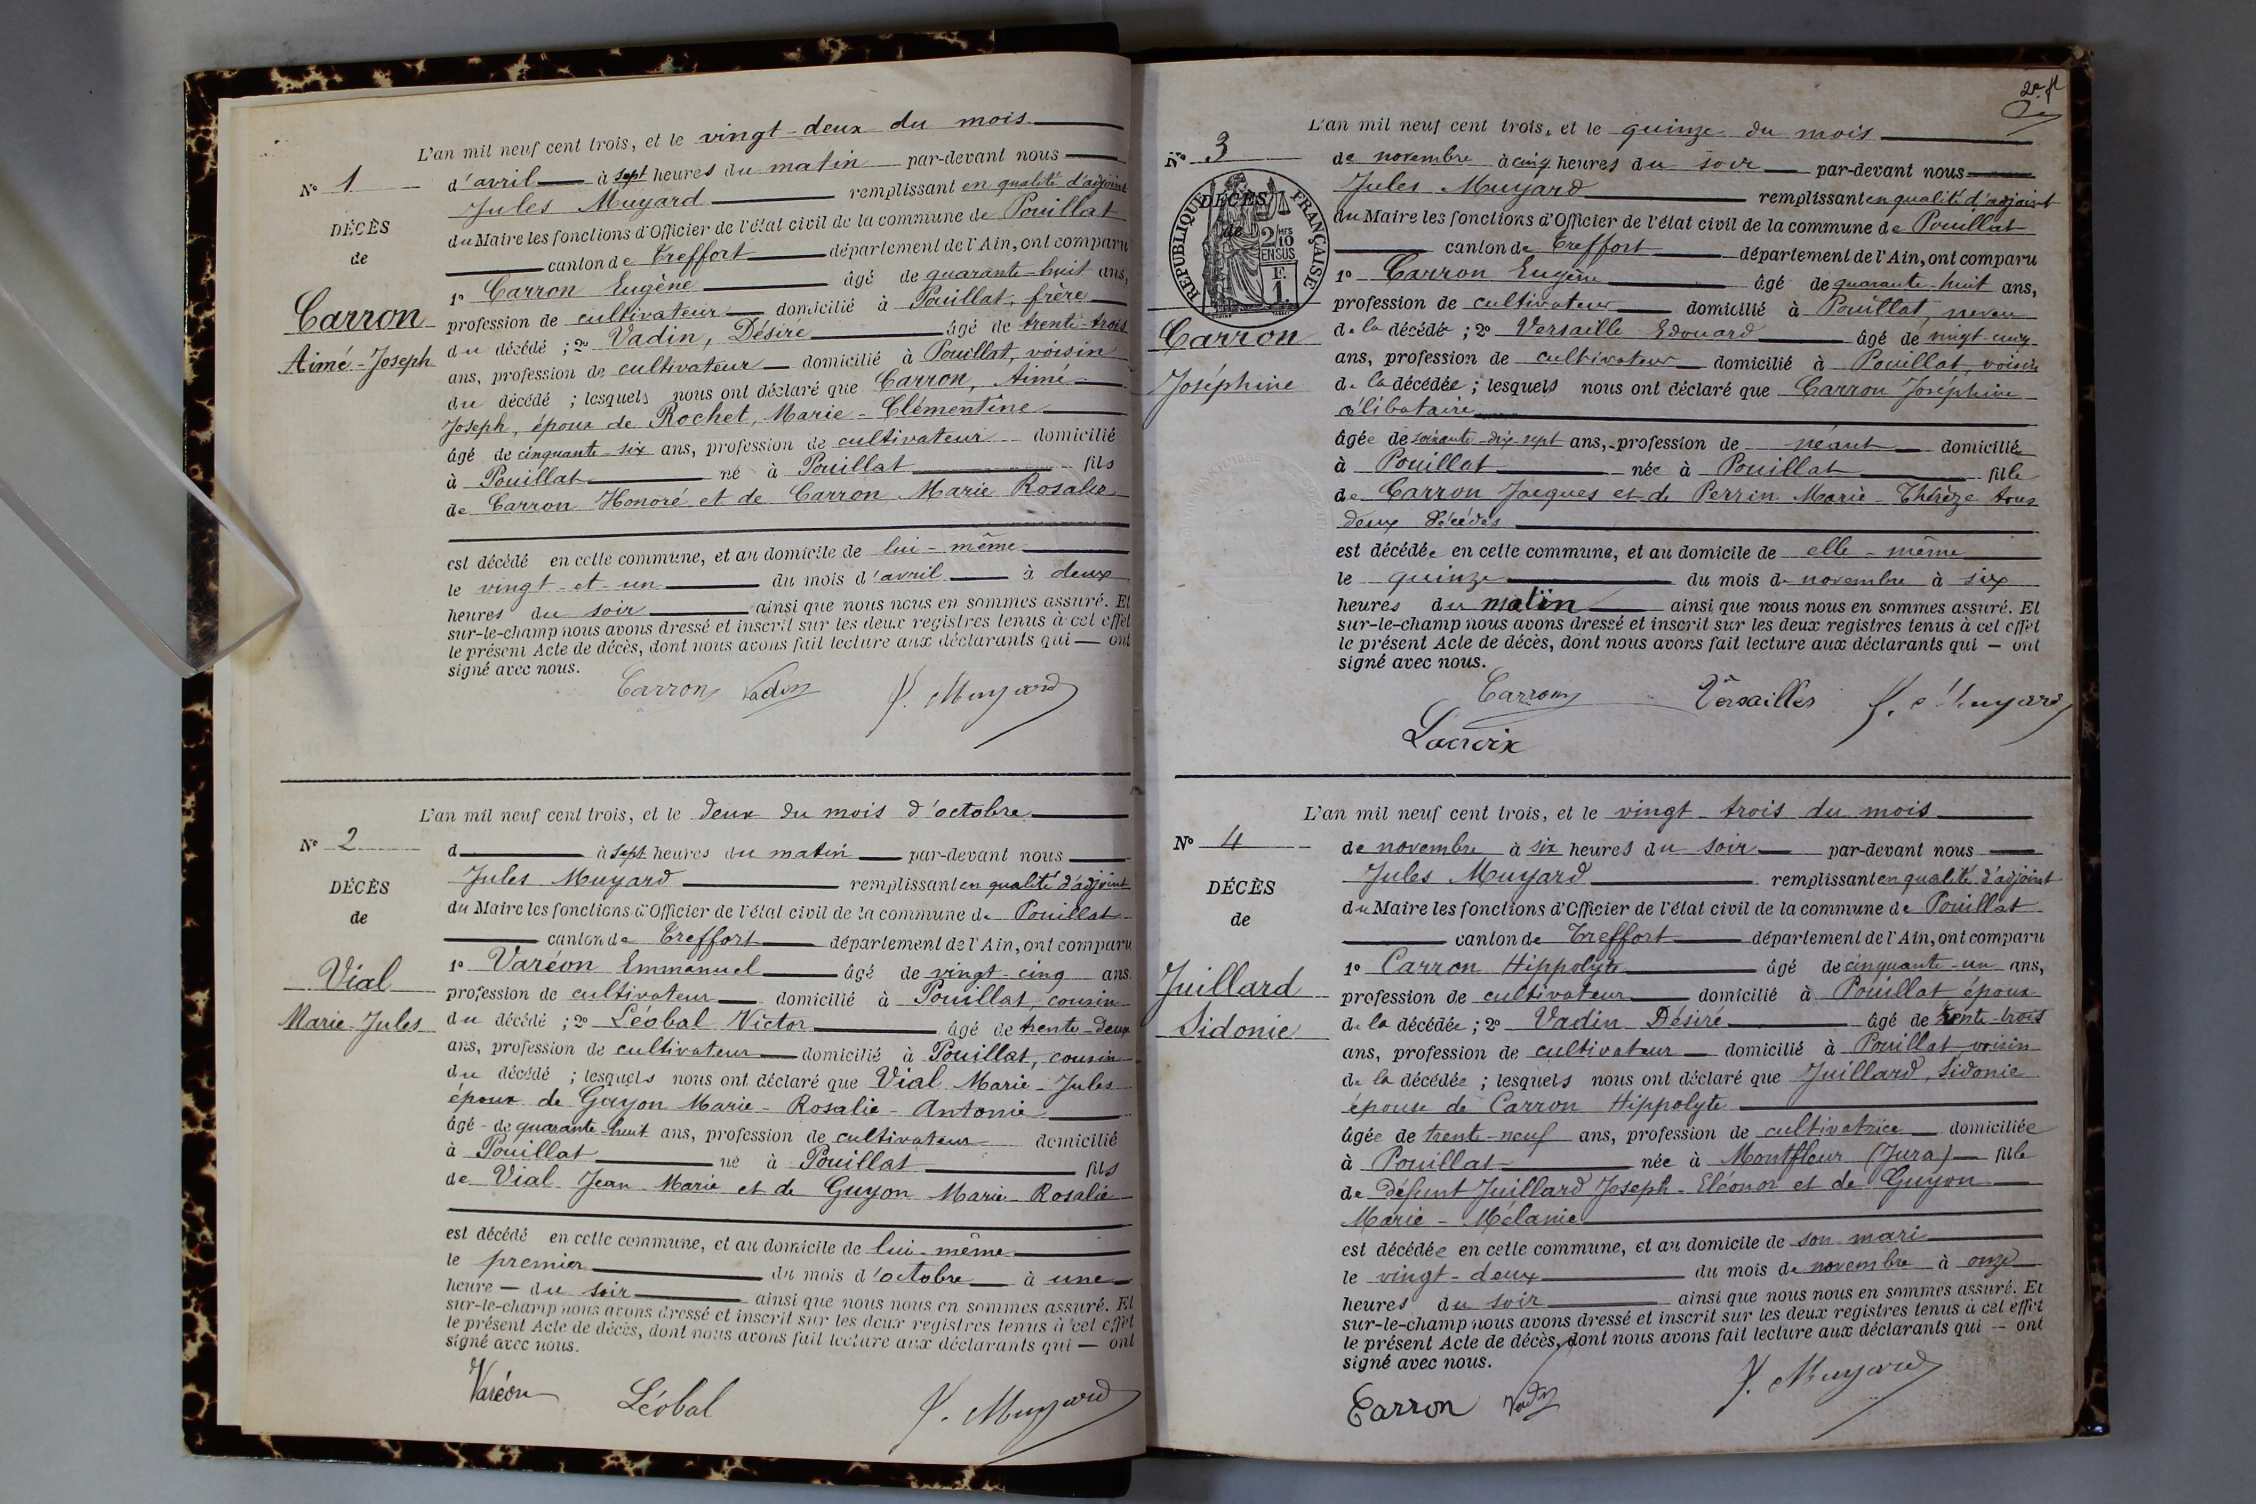 L'an mil neuf cent trois, et le vingt-deux du mois
N° 1
d'avril à sept heures du matin par-devant nous
Jules Muyard remplissant en qualité d'adjoint
DÉCÈS
du Maire les fonctions d'Officier de l'état civil de la commune de Pouillat
de
canton de Treffort département de l'Ain, ont comparu
1° Carron Eugène âgé de quarante-huit ans,
Carron
profession de cultivateur domicilié à Pouillat, frère
du décédé ; 2° Vadin, Désiré âgé de trente-trois
Aimé-Joseph
ans, profession de cultivateur domicilié à Pouillat, voisin
du décédé ; lesquels nous ont déclaré que Carron, Aimé-
Joseph, époux de Rochet, Marie-Clémentine
âgé de cinquante-six ans, profession de cultivateur domicilié
à Pouillat né à Pouillat fils
de Carron Honoré et de Carron Marie Rosalie
est décédé en cette commune, et au domicile de lui-même
le vingt-et-un du mois d'avril à deux
heures du soir ainsi que nous nous en sommes assuré. Et
sur-le-champ nous avons dressé et inscrit sur les deux registres tenus à cet effet
le présent Acte de décès, dont nous avons fait lecture aux déclarants qui — ont
signé avec nous.
Carron Vadin J. Muyard
L'an mil neuf cent trois, et le deux du mois d'octobre
N° 2
d à sept heures du matin par-devant nous
Jules Muyard remplissant en qualité d'adjoint
DÉCÈS
du Maire les fonctions d'Officier de l'état civil de la commune de Pouillat
de
canton de Treffort département de l'Ain, ont comparu
1° Varéon Emmanuel âgé de vingt-cinq ans.
Vial
profession de cultivateur domicilié à Pouillat, cousin
Marie-Jules
du décédé ; 2° Léobal Victor âgé de trente-deux
ans, profession de cultivateur domicilié à Pouillat, cousin
du décédé ; lesquels nous ont déclaré que Vial Marie-Jules
époux de Guyon Marie-Rosalie-Antonie
âgé de quarante-huit ans, profession de cultivateur domicilié
à Pouillat né à Pouillat fils
de Vial Jean-Marie et de Guyon Marie-Rosalie
est décédé en cette commune, et au domicile de lui-même
le premier du mois d'octobre à une
heure — du soir ainsi que nous nous en sommes assuré. Et
sur-le-champ nous avons dressé et inscrit sur les deux registres tenus à cet effet
le présent Acte de décès, dont nous avons fait lecture aux déclarants qui — ont
signé avec nous.
Varéon Léobal J. Muyard
L'an mil neuf cent trois, et le quinze du mois
N° 3
de novembre à cinq heures du soir par-devant nous
Jules Muyard remplissant en qualité d'adjoint
DÉCÈS
de
RÉPUBLIQUE FRANÇAISE
2/10 MES
EN SUS
F.
1.
du Maire les fonctions d'Officier de l'état civil de la commune de Pouillat
canton de Treffort département de l'Ain, ont comparu
1° Carron Eugène âgé de quarante-huit ans,
profession de cultivateur domicilié à Pouillat, neveu
Carron
de la décédée ; 2° Versaille Edouard âgé de vingt-cinq
ans, profession de cultivateur domicilié à Pouillat, voisin
Joséphine
de la décédée ; lesquels nous ont déclaré que Carron Joséphine
célibataire
âgée de soixante-dix-sept ans, profession de néant domiciliée
à Pouillat née à Pouillat fille
de Carron Jacques et de Perrin Marie-Thérèze tous
deux décédés
est décédée en cette commune, et au domicile de elle-même
le quinze du mois de novembre à six
heures du matin ainsi que nous nous en sommes assuré. Et
sur-le-champ nous avons dressé et inscrit sur les deux registres tenus à cet effet
le présent Acte de décès, dont nous avons fait lecture aux déclarants qui — ont
signé avec nous.
Carron Versailles J. Muyard
Lacroix
L'an mil neuf cent trois, et le vingt-trois du mois
N° 4
de novembre à six heures du soir par-devant nous
Jules Muyard remplissant en qualité d'adjoint
DÉCÈS
du Maire les fonctions d'Officier de l'état civil de la commune de Pouillat
de
canton de Treffort département de l'Ain, ont comparu
1° Carron Hippolyte âgé de cinquante-un ans,
Juillard
profession de cultivateur domicilié à Pouillat époux
Sidonie
de la décédée ; 2° Vadin Désiré âgé de trente-trois
ans, profession de cultivateur domicilié à Pouillat voisin
de la décédée ; lesquels nous ont déclaré que Juillard, Sidonie
épouse de Carron Hippolyte
âgée de trente-neuf ans, profession de cultivatrice domiciliée
à Pouillat née à Montfleur (Jura) fille
de défunt Juillard Joseph-Eléonor et de Guyon
Marie-Mélanie
est décédée en cette commune, et au domicile de son mari
le vingt-deux du mois de novembre à onze
heures du soir ainsi que nous nous en sommes assuré. Et
sur-le-champ nous avons dressé et inscrit sur les deux registres tenus à cet effet
le présent Acte de décès, dont nous avons fait lecture aux déclarants qui — ont
signé avec nous.
Carron Vadin J. Muyard